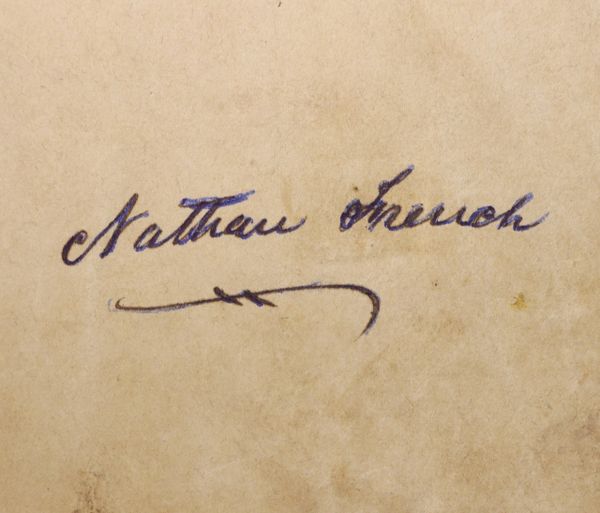 Nathan French